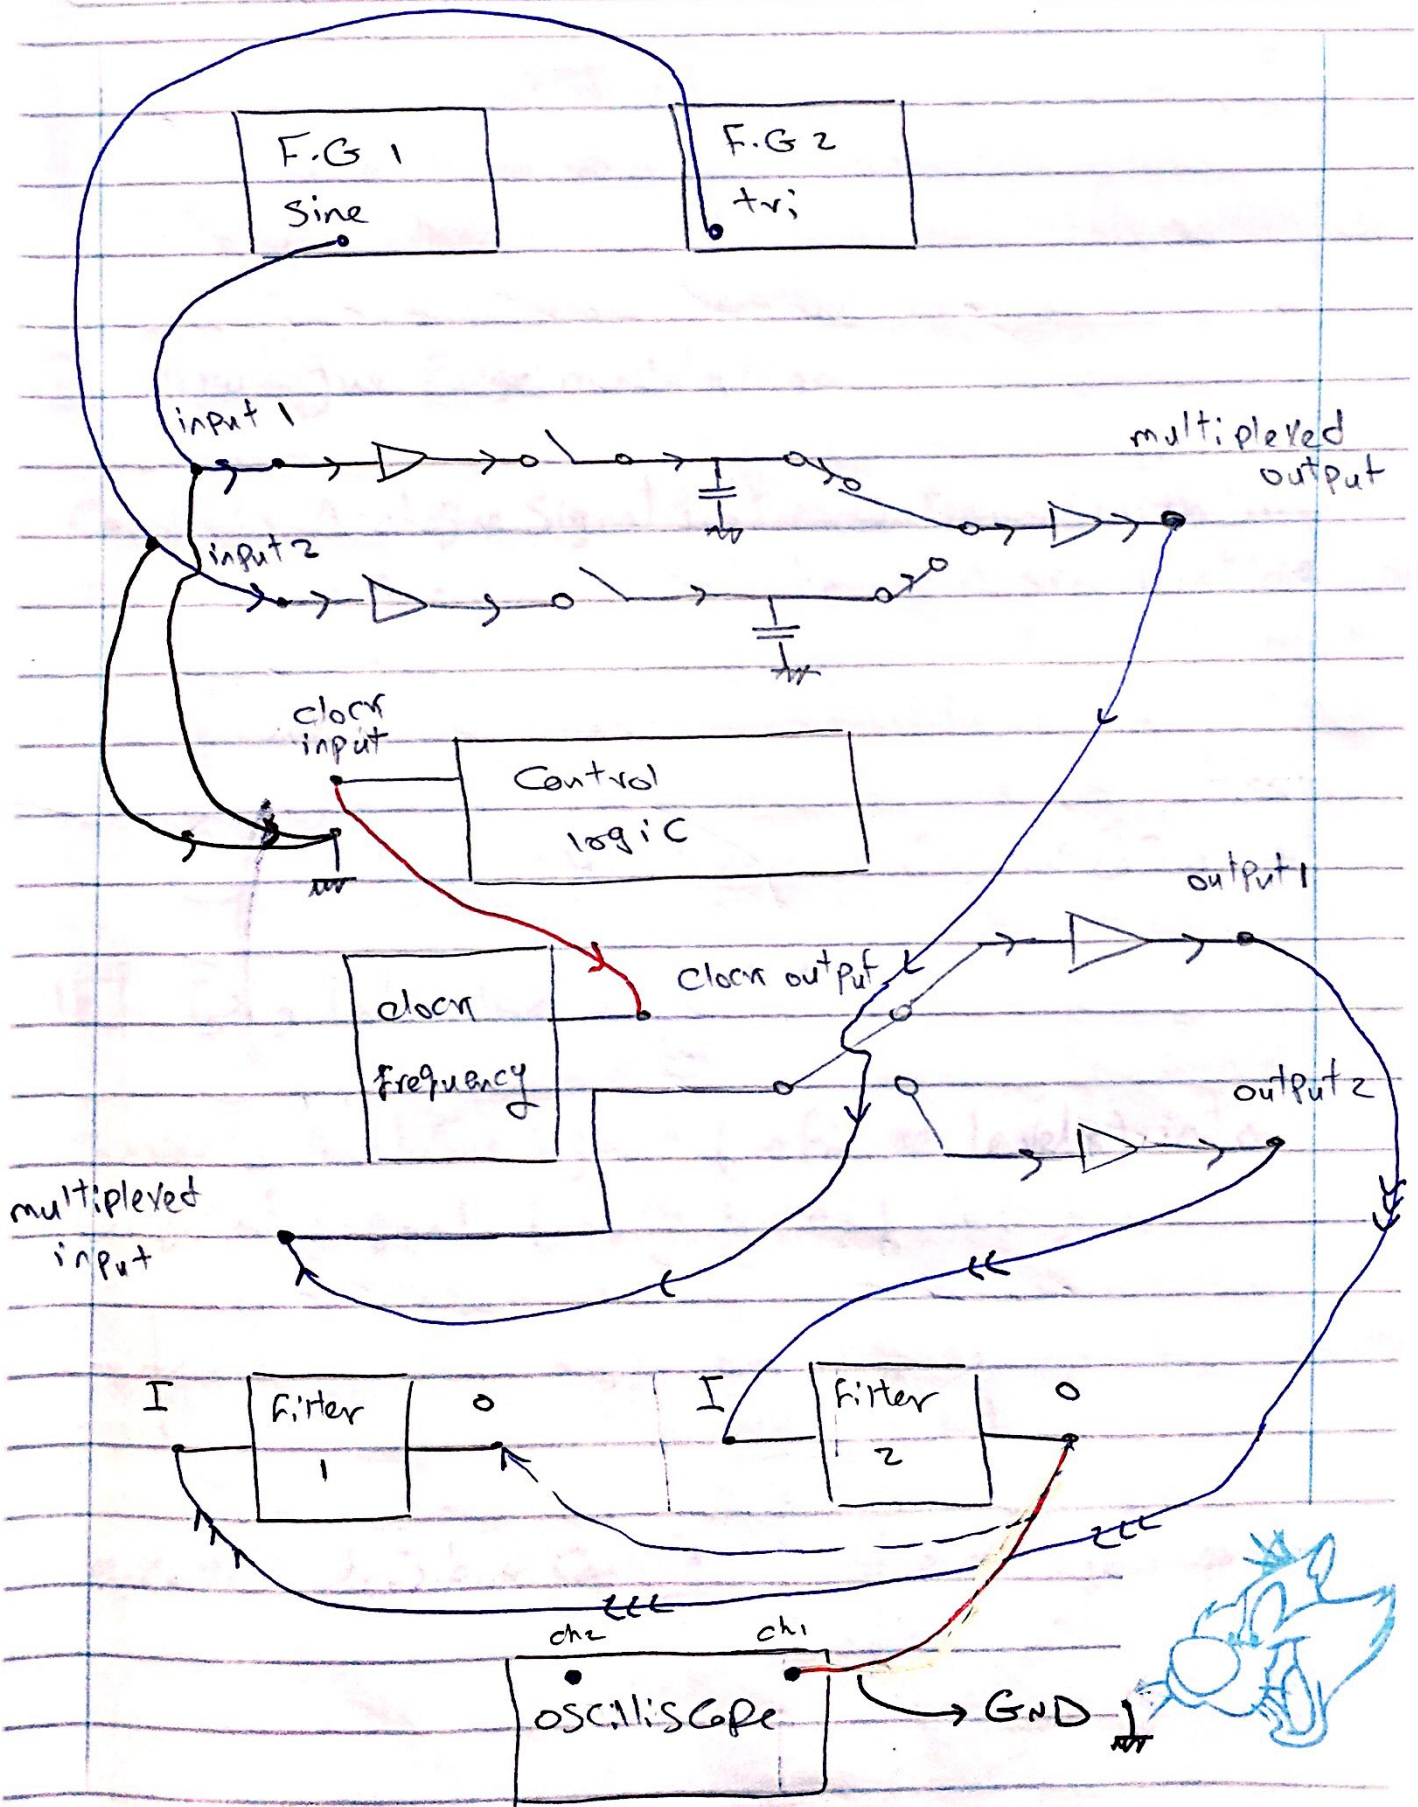 F.G 1
sine
F.G 2
tri
input 1
multiplexed
output
input 2
clock
input
Control
logic
output 1
clock output
clock
frequency
output 2
multiplexed
input
I
filter
1
O
I
filter
2
O
ch2
ch1
oscilliscope
GND